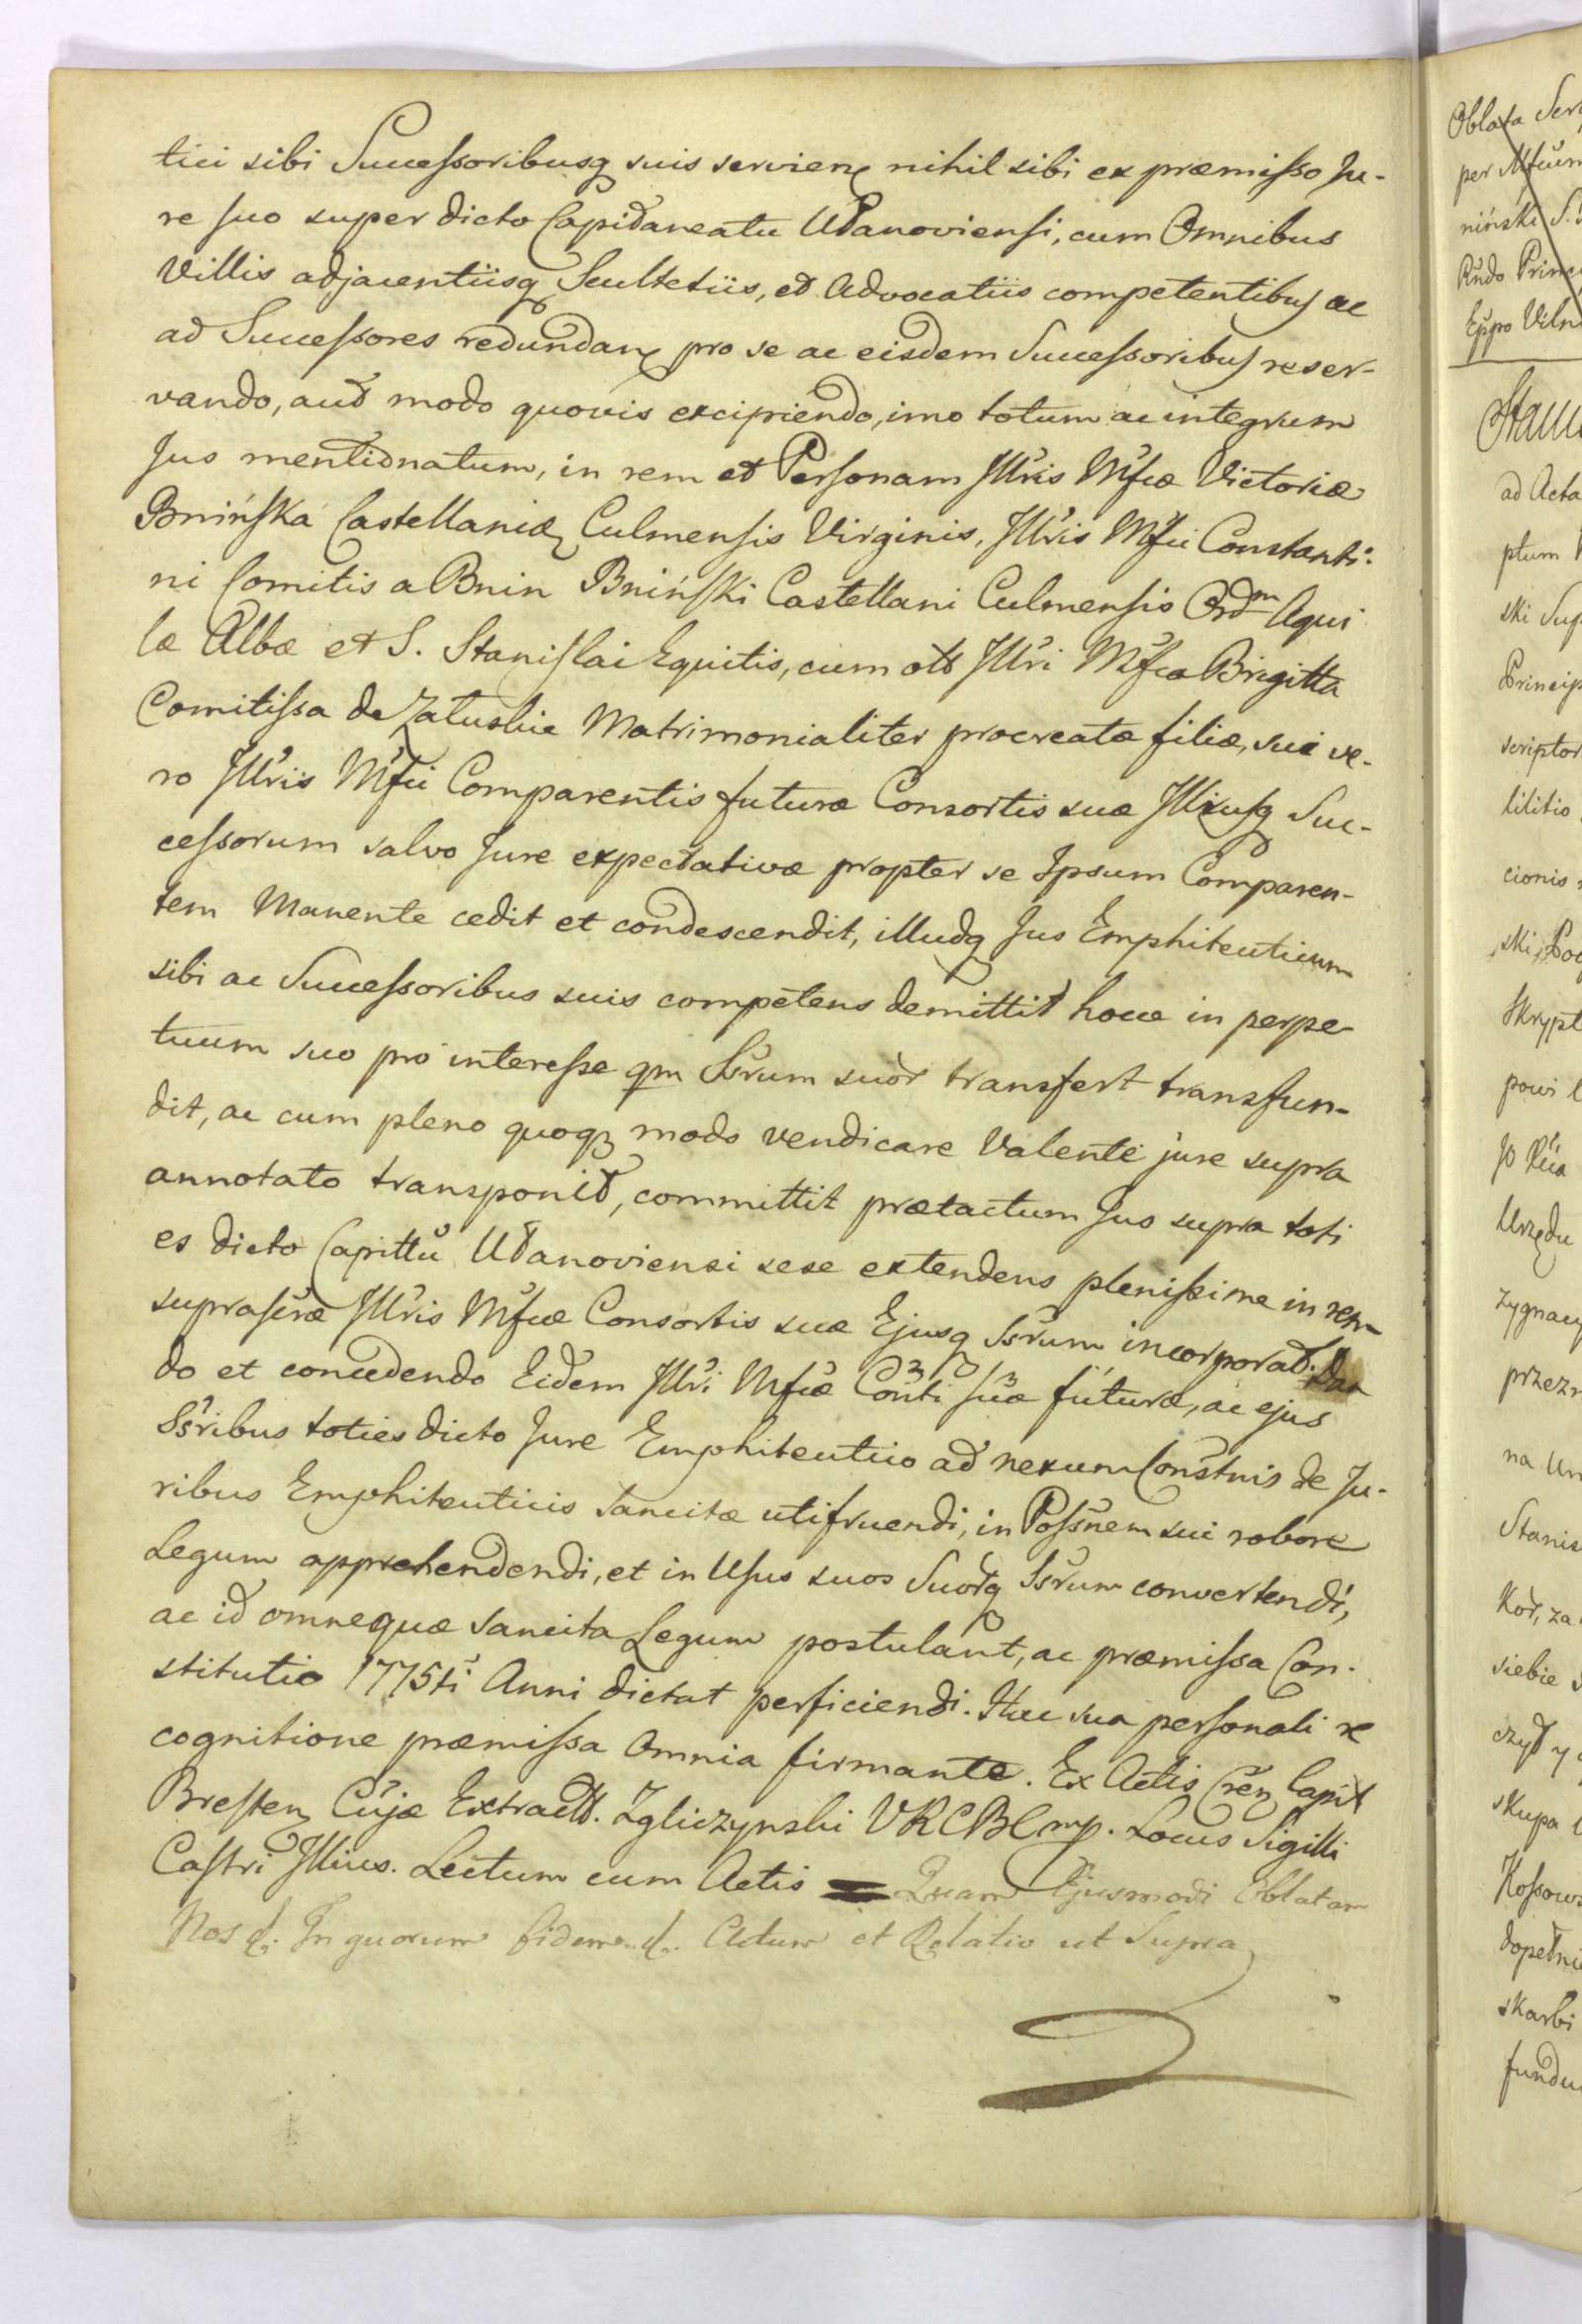 tici sibi Successoribusq suis servien nihil sibi ex præmisso Ju-
re suo super dicto Capitaneatu Utanoviensi, cum Omnibus
Villis adjacentiisq Scultetiis, et Advocatiis competentibus ac
ad Successores redundan pro se ac eisdem Successoribus reser-
vando, aut modo quovis excipiendo, imo totum ac integrum
Jus mentionatum, in rem et Personam Illris Mfcæ Victoriæ
Bnińska Castellanidæ Culmensis Virginis, Illris Mfci Constanti-
ni Comitis a Bnin Bniński Castellani Culmensis Ordm Aqui
læ Albæ et S. Stanislai Equitis, cum Illri Mfca Brigitta
Comitissa de Załuskie Matrimonialiter procreatæ filiæ, sui ve-
ro Illris Mfci Comparentis futuræ Consortis suæ Illiusq Suc-
cessorum salvo Jure expectativæ propter se Ipsum Comparen-
tem Manente cedit et condescendit, illudq Jus Emphiteuticum
sibi ac Successoribus suis competens demittit hocce in perpe
tuum suo pro interesse qm Ssrum suor transfert transfun-
dit, ac cum pleno quoq modo vendicare Valenti jure supra
annotato transponit, committit prætactum Jus supra toti
es dicto Capittu Utanoviensi sese extendens plenissime in rem
suprascræ Illris Mfcæ Consortis suæ Ejusq Ssrum incorporat. Dan
do et concedendo Eidem Illri Mfcæ Conti suæ futuræ, ac ejus
Ssribus toties dicto Jure Emphiteutico ad nexum Constnis de Ju-
ribus Emphiteuticis Sancitæ utifruendi, in Possnem sui robore
Legum apprehendendi, et in Usus suos Suorq Ssrum convertendi,
ac id omne quæ Sancita Legum postulant, ac præmissa Con-
stitutio 1775ti Anni dictat perficiendi. Hac sua personali re
cognitione præmissa Omnia firmante. Ex Actis Cren Capit
Bresten Cujæ Extractt. Zgliczynski VRCBC mp. Locus Sigilli
Castri Illius. Lectum cum Actis = Quam Ejusmodi Oblatam
Nos &. In quorum fidem &. Actum et Relatio ut Supra
Oblata
per Mfcum
niński S.
Rndo Princ
Eppo Viln
ad Acta
ptum
ski Sup
Princip
scriptor
lilitio
cionis
ski
Skrypt
powi
Urzędu
Zygnacy
przezn
na Um
Stanis
Kor, za
siebie
czyt y
skupa
Kossows
dopełni
skarbi
fundu